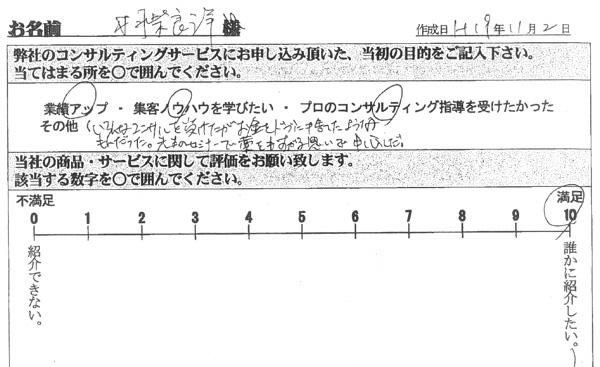 お名前 様 作成日 H19年11月2日
弊社のコンサルティングサービスにお申し込み頂いた、当初の目的をご記入下さい。
当てはまる所を〇で囲んでください。
業績アップ ・ 集客ノウハウを学びたい ・ プロのコンサルティング指導を受けたかった
その他（いろんなコンサルを受けたがお金をドブに捨てたような
ものだった。
当社の商品・サービスに関して評価をお願い致します。
該当する数字を〇で囲んでください。
不満足 満足
0 1 2 3 4 5 6 7 8 9 10
紹介できない。
誰かに紹介したい。）